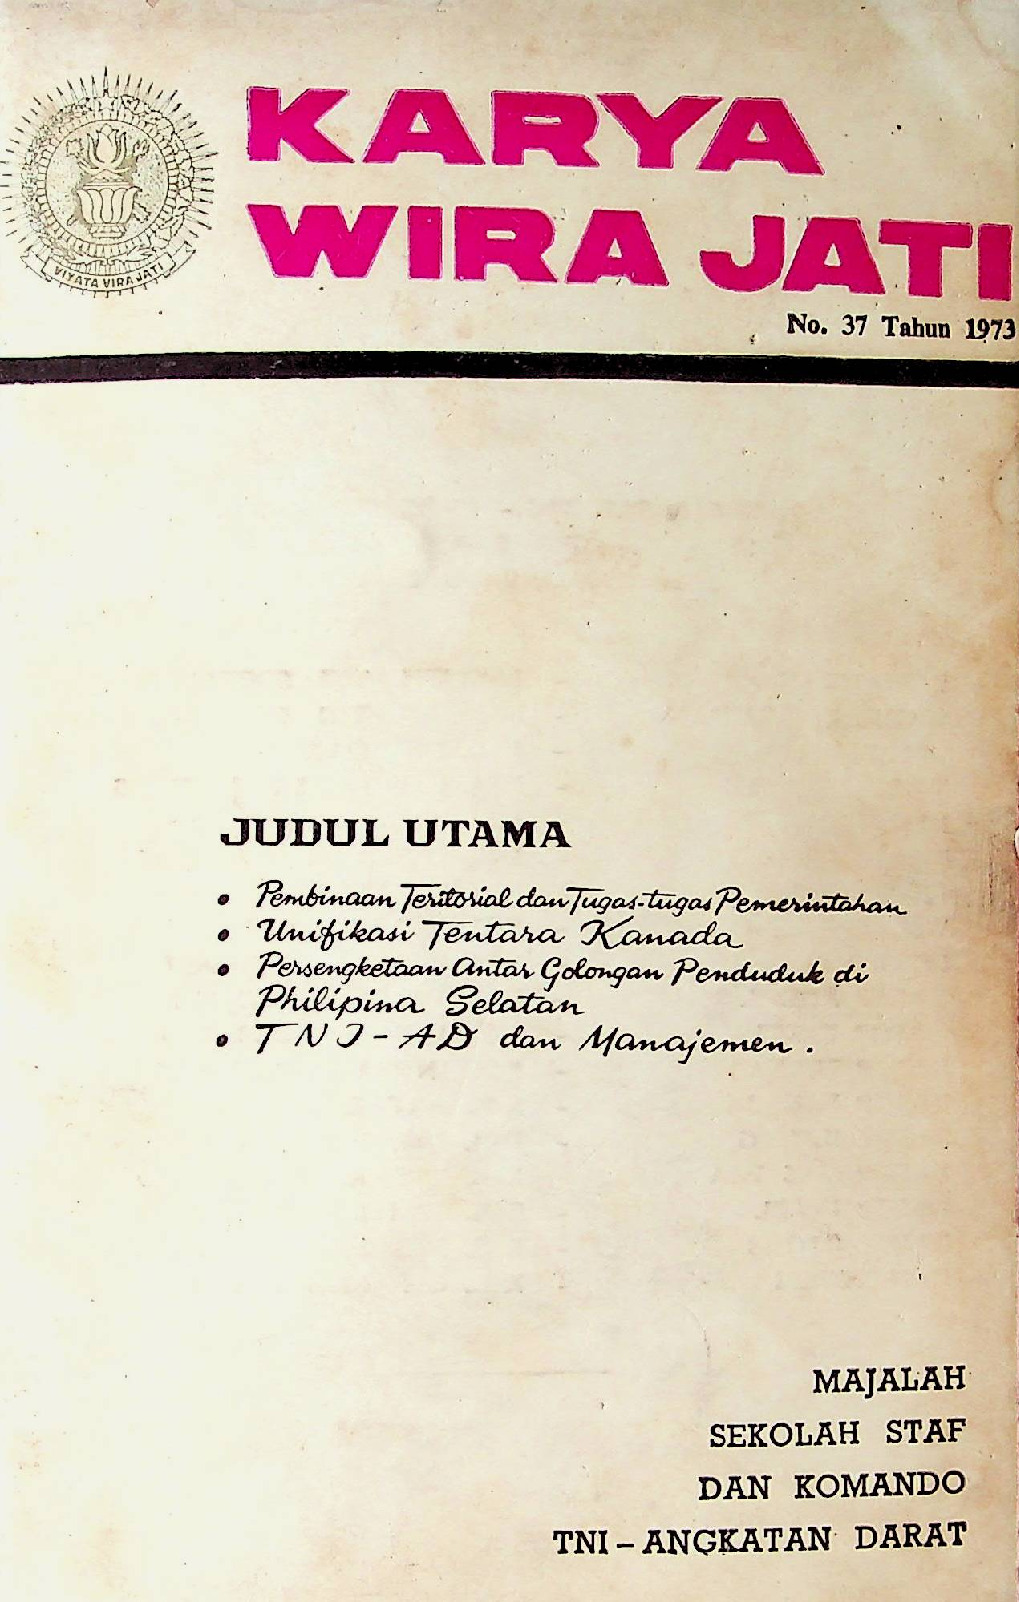 KARYA
WIRA JATI
VIYATA VIRA JATI
No. 37 Tahun 1973
JUDUL UTAMA
• Pembinaan Teritorial dan Tugas-tugas Pemerintahan
• Unifikasi Tentara Kanada
• Persengketaan Antar Golongan Penduduk di
Philipina Selatan
• TNI-AD dan Manajemen.
MAJALAH
SEKOLAH STAF
DAN KOMANDO
TNI – ANGKATAN DARAT